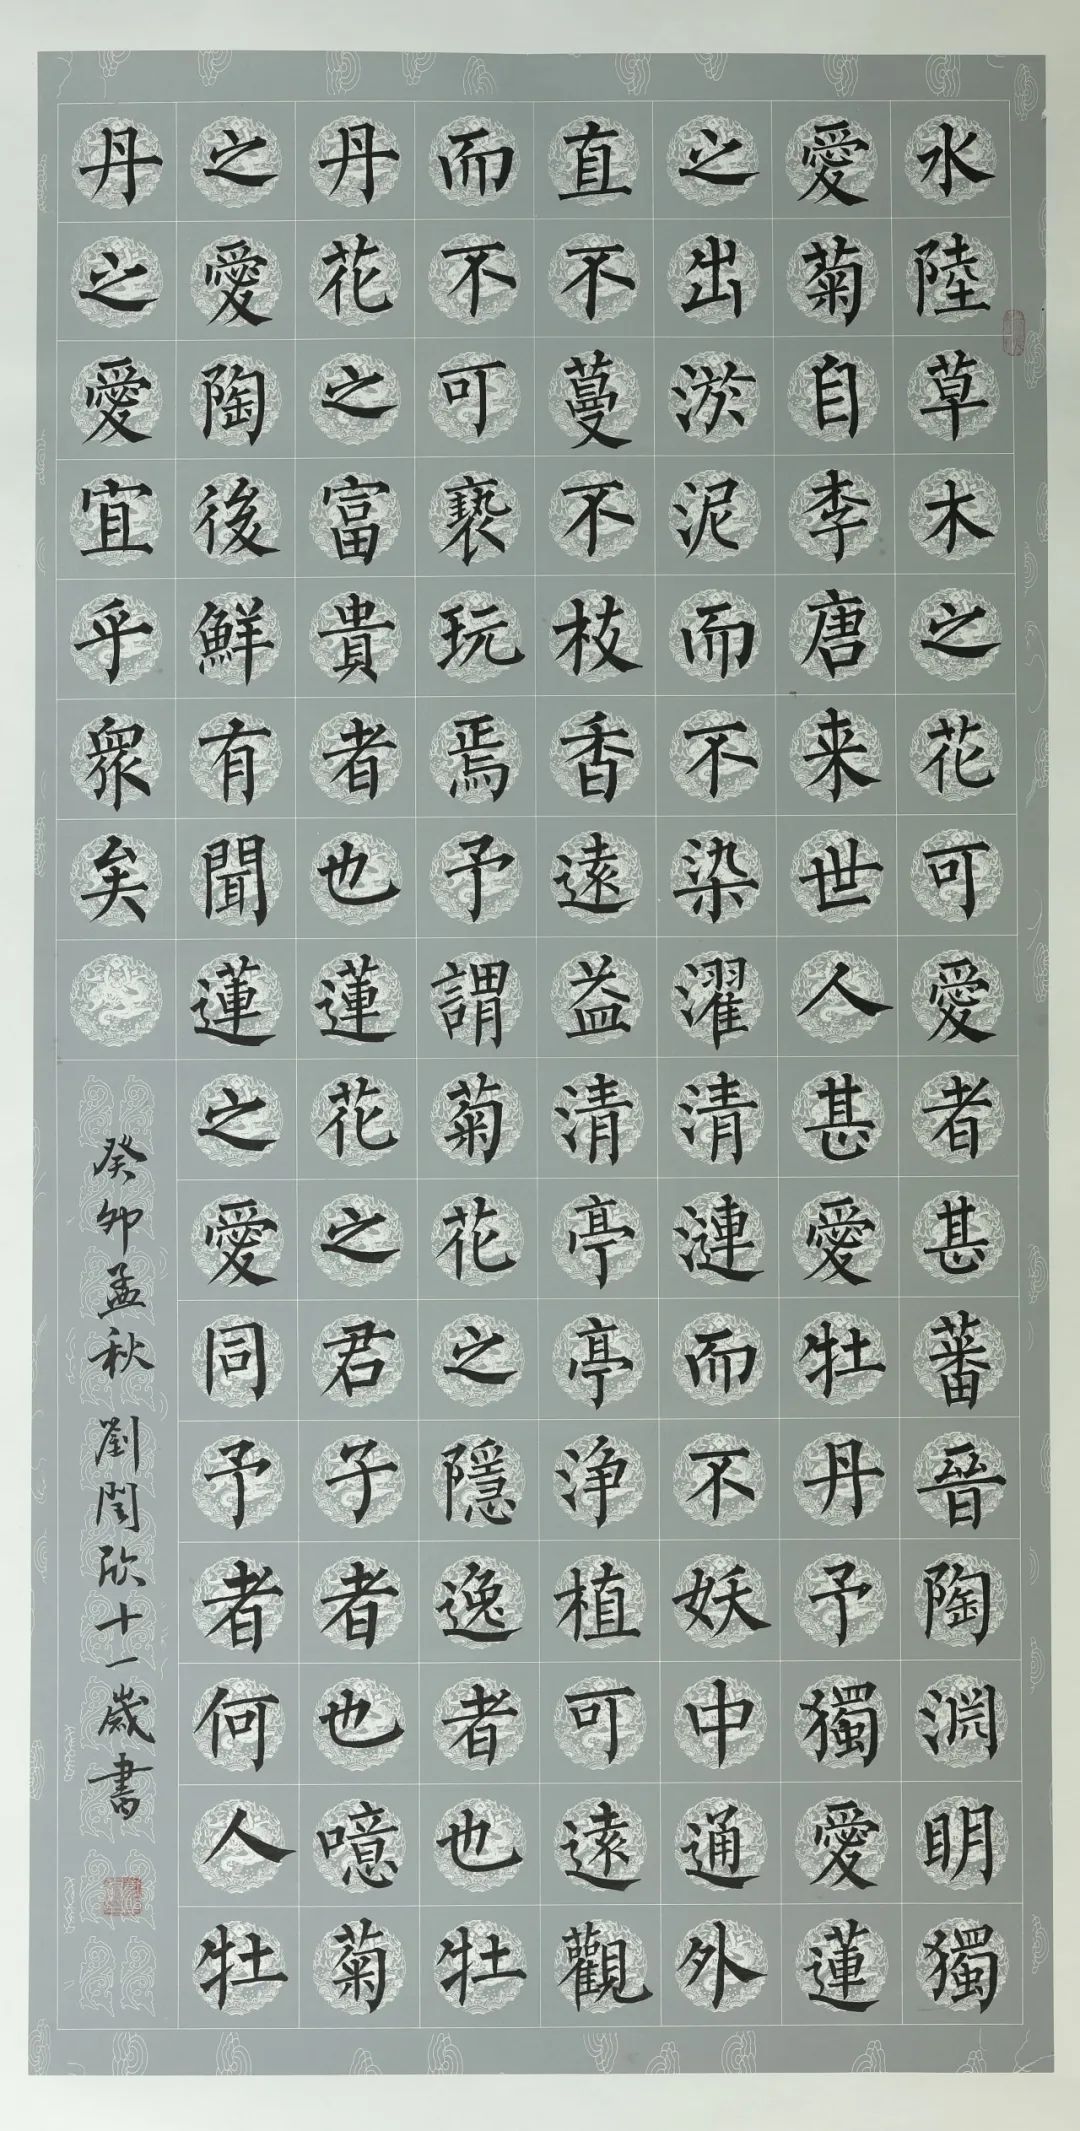 水陸草木之花可愛者甚蕃晉陶渊明獨
愛菊自李唐来世人甚愛牡丹予獨愛蓮
之出淤泥而不染濯清漣而不妖中通外
直不蔓不枝香遠益清亭亭浄植可遠觀
而不可褻玩焉予謂菊之花之隱逸者也牡
丹花之富貴者也蓮花之君子者也噫菊
之愛陶後鮮有聞蓮之愛同予者何人牡
丹之愛宜乎眾矣
癸卯孟秋劉閏欣十一歲書